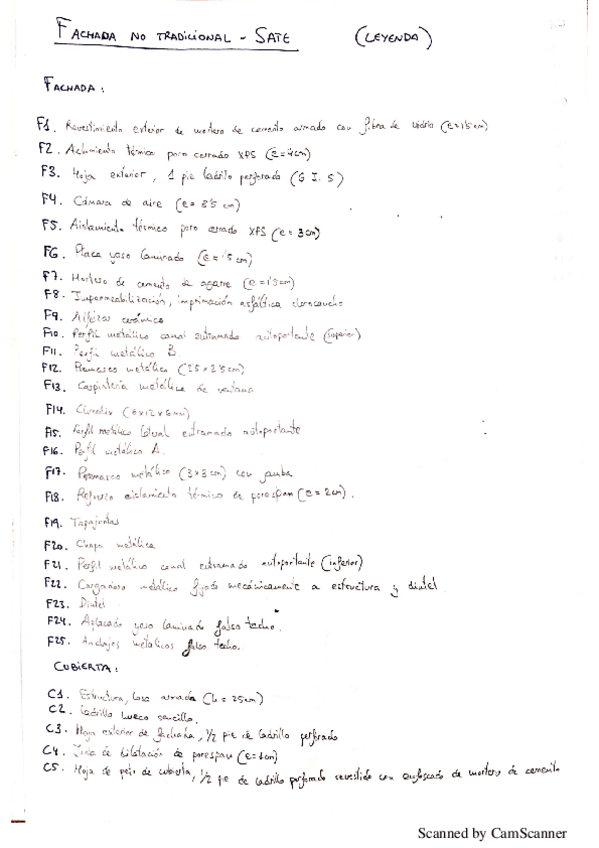 FACHADA NO TRADICIONAL - SATE (LEYENDA)
FACHADA:
F1. Revestimiento exterior de mortero de cemento armado con fibra de vidrio (e=1'5 cm)
F2. Aislamiento térmico para cerrado XPS (e=4cm)
F3. Hoja exterior, 1 pie ladrillo perforado (G I. S)
F4. Cámara de aire (e= 3'5 cm)
F5. Aislamiento térmico para cerrado XPS (e= 3cm)
F6. Placa yeso laminado (e= 1'5 cm)
F7. Mortero de cemento de agarre (e=1'5cm)
F8. Impermeabilización, imprimación asfáltica
F9. Alféizar cerámico
F10. Perfil metálico canal entramado autoportante (superior)
F11. Perfil metálico B.
F12. Premarco metálico
F13. Carpintería metálica de ventana
F14. Climalit
F15. Perfil metálico lateral entramado autoportante
F16. Perfil metálico A.
F17. Premarco metálico (3x3 cm) con
F18. Refuerzo aislamiento térmico de porespan (e= 2cm).
F19. Tapajuntas
F20. Chapa metálica
F21. Perfil metálico canal entramado autoportante (inferior)
F22. Cargadero metálico fijado mecánicamente a estructura y dintel
F23. Dintel
F24. Aplacado yeso laminado falso techo.
F25. Anclajes metálicos falso techo.
CUBIERTA:
C1. Estructura, losa armada (h= 25cm)
C2. Ladrillo hueco sencillo.
C3. Hoja exterior de fachada, 1/2 pie de ladrillo perforado
C4. Junta de dilatación de porespan (e=1cm)
C5. Hoja de peto de cubierta, 1/2 pie de ladrillo perforado revestido con enfoscado de mortero de cemento
Scanned by CamScanner